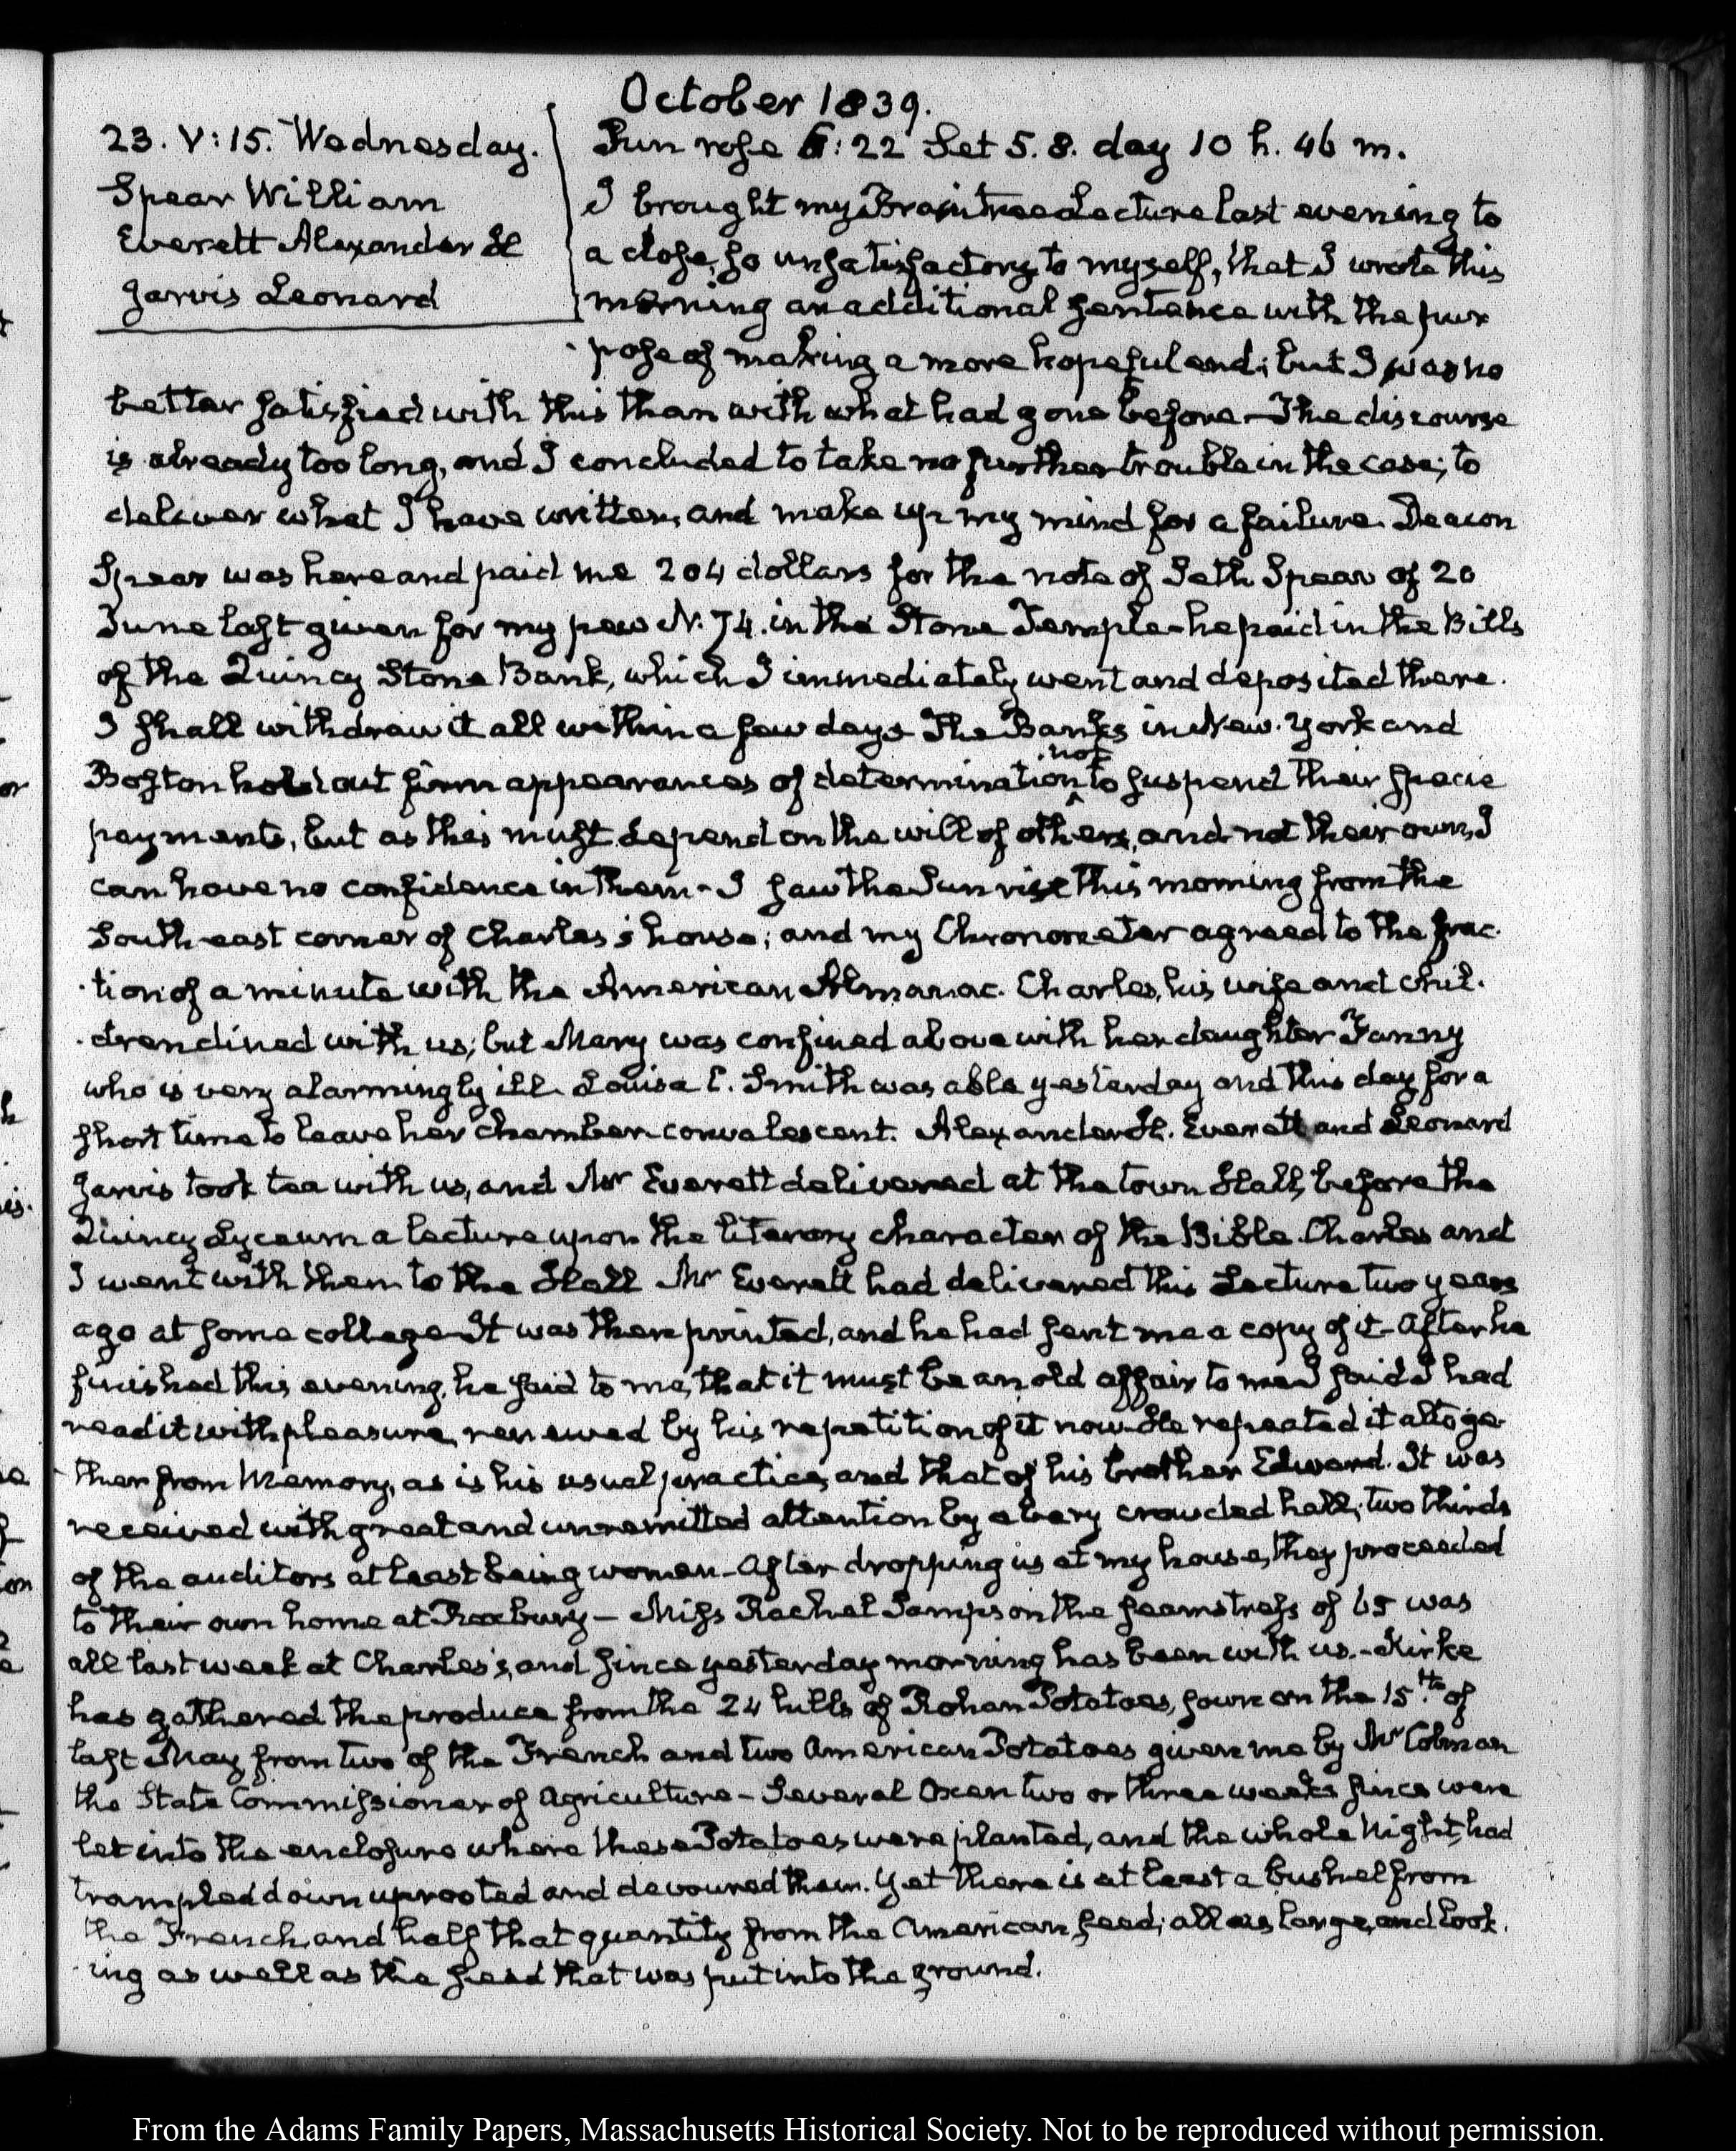 October 1839.
23. V:15. Wednesday. Sun rose 6:22 Set 5.8. day 10 h. 46 m.
Spear William
Everett Alexander H
Jarvis Leonard
I brought my Braintree Lecture last evening to
a close, so unsatisfactory to myself, that I wrote this
morning an additional sentence with the pur
-pose of making a more hopeful end; but I was no
better satisfied with this than with what had gone before—The discourse
is already too long, and I concluded to take no further trouble in the case; to
deliver what I have written, and make up my mind for a failure. Deacon
Spear was here and paid me 204 dollars for the note of Seth Spear of 20
June last given for my pew N. 74. in the Stone Temple—he paid in the Bills
of the Quincy Stone Bank, which I immediately went and deposited there.
I shall withdraw it all within a few days—The Banks in New-York and
Boston hold out firm appearances of determination not to suspend their specie
payments, but as this must depend on the will of others, and not their own, I
can have no confidence in them—I saw the Sun rise this morning from the
South east corner of Charles's house; and my Chronometer agreed to the frac-
-tion of a minute with the American Almanac. Charles, his wife and chil-
-dren dined with us; but Mary was confined above with her daughter Fanny
who is very alarmingly ill. Louisa C. Smith was able yesterday and this day for a
short time to leave her chamber convalescent. Alexander H. Everett and Leonard
Jarvis took tea with us, and Mr Everett delivered at the town Hall, before the
Quincy Lyceum a lecture upon the literary character of the Bible. Charles and
I went with them to the Hall Mr Everett had delivered this Lecture two years
ago at some college—It was then printed, and he had sent me a copy of it—After he
finished this evening, he said to me, that it must be an old affair to me—I said I had
read it with pleasure, renewed by his repetition of it now—He repeated it altoge-
-ther from Memory, as is his usual practice, and that of his brother Edward. It was
received with great and unremitted attention by a very crowded hall; two thirds
of the auditors at least being women—After dropping us at my house, they proceeded
to their own home at Roxbury—Miss Rachel Sampson the seamstress of 65 was
all last week at Charles's, and since yesterday morning has been with us.—Kirke
has gathered the produce from the 24 hills of Rohan Potatoes, sown on the 15th of
last May from two of the French and two American Potatoes given me by Mr Colman
the State Commissioner of Agriculture—Several Oxen two or three weeks since were
let into the enclosure where these Potatoes were planted, and the whole Night, had
trampled down uprooted and devoured them. Yet there is at least a bushel from
the French, and half that quantity from the American seed; all as large, and look-
-ing as well as the seed that was put into the ground.
From the Adams Family Papers, Massachusetts Historical Society. Not to be reproduced without permission.